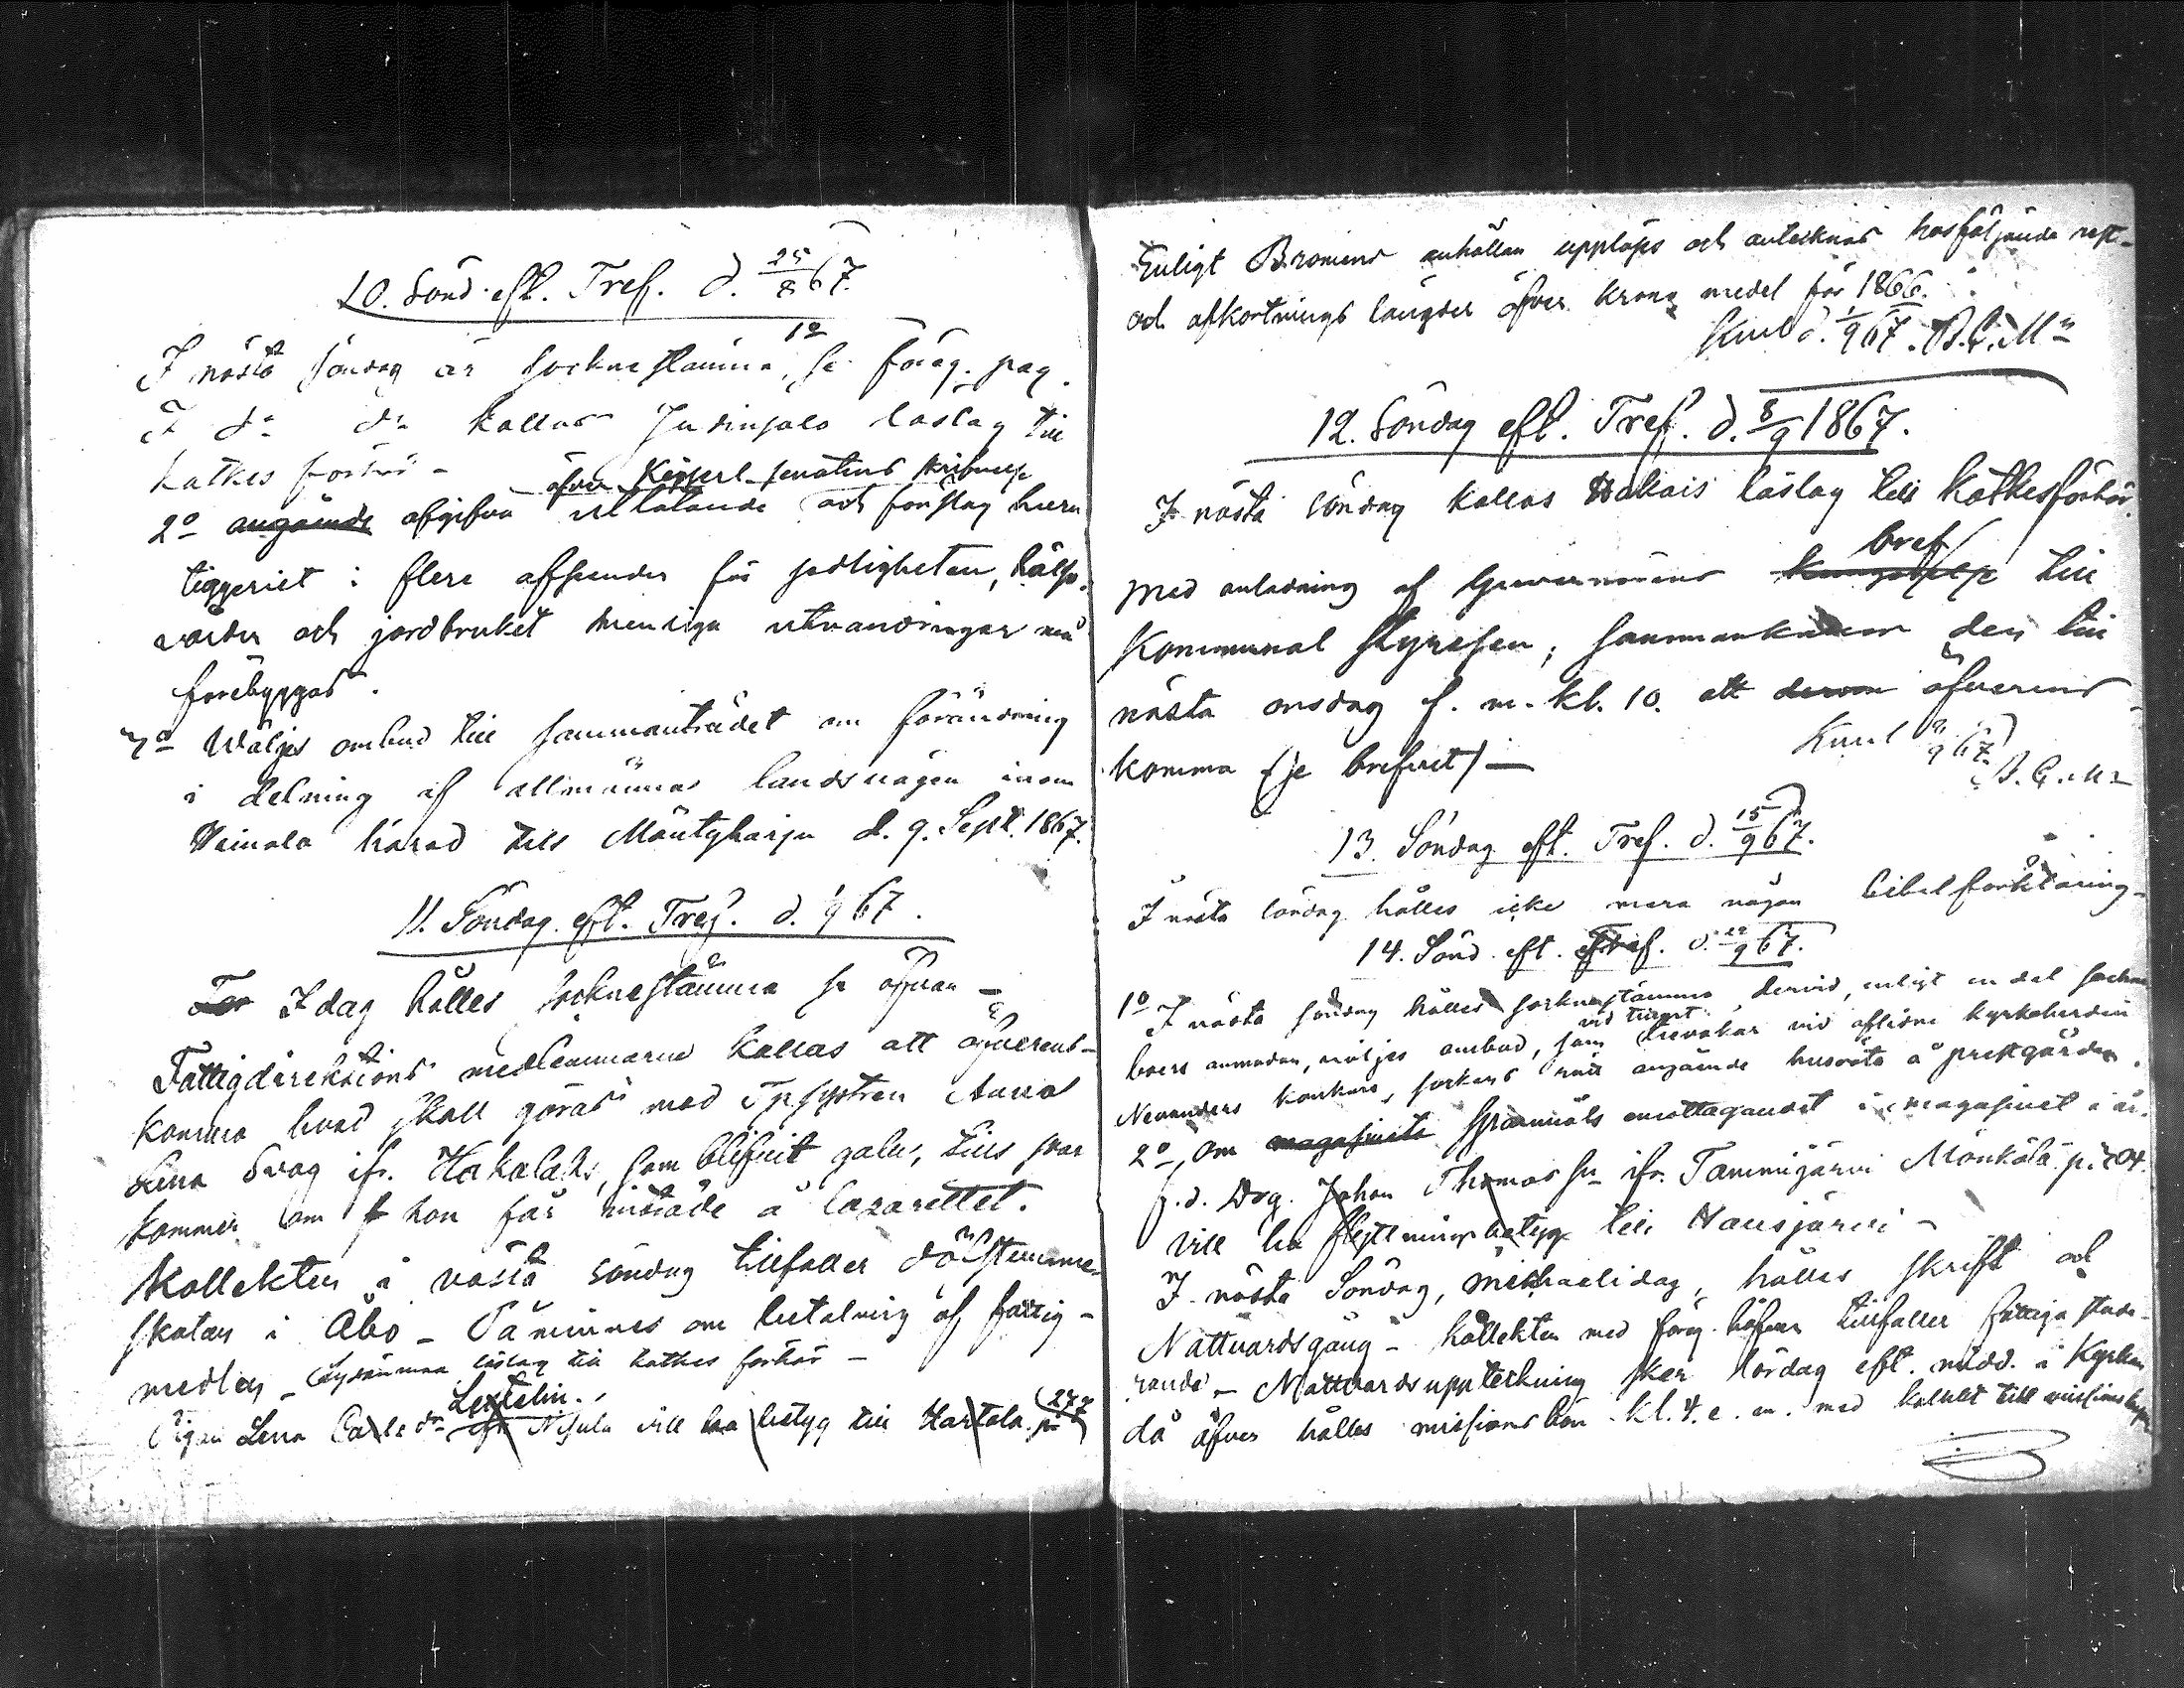 10. Sönd. eft. Tref. d. 25/8 67.
I nästa söndag är sockne stämma, 1o se föreg. pag.
I do do kallas Judinsalo läslag till
katkes förhör -
öfver Kejserl. senatens skrifvelse
2o angående afgifva utlåtande och förslag huru
tiggeriet i flere afseenden för sedligheten, hälso-
vården och jordbruket menliga utvandringar må
förebyggas.
3o Wäljes ombud till sammanträdet om förändring
i delning af allmänna landsvägen inom
Heinola härad till Mäntyharju d. 9. Sept. 1867.
11. Söndag. eft. Tref. d. 1/9 67.
I dag hålles socknestämma se ofvan -
Fattigdirektions medlemmarne kallas att öfverens-
komma hvad skall göras med Anna
Lena Svag ifr. Hakalaks, som blifvit galen, tills svar
kommer om hon får inträde å lazarettet.
Kollekten i nästa söndag tillfaller döfstumme-
skolan i Åbo - Påminnes om betalning af fattig-
medlen - Lysänmaa läslag till katkes förhör -
Lextelin.
Pigan Lena do Nisula vill ha betyg till Hartola. p. 277
Enligt Bromens anhållan uppläses och antecknas hosföljande rest-
och afkortnings längder öfver krono medel för 1866.
Kunl d. 1/9 67.
12. Söndag eft. Tref. d. 8/9 1867.
I nästa söndag kallas läslag till katkesförhör.
Med anledning af Guvernörens bref till
Kommunal styrelsen, sammankallas den till
nästa onsdag f. m. kl. 10. att derom öfverens-
komma (se brefvet) -
Kunl 8/9 67.
13. Söndag eft. Tref. d. 15/9 67.
I nästa söndag hålles icke mera någon bibelförklaring -
14. Sönd. eft. Tref. d. 22/9 67.
1o I nästa söndag hålles socknestämma, dervid, enligt en del socken-
vid tinget
boers anmodan, väljes ombud, som bevakar vid aflidne kyrkoherden
Nevanders konkurs, sockens rätt angående husröta å prestgården.
2o, Om magasinets spannmåls emottagandet i magasinet i år.
f. d. Drg. Johan Thomas ifr. Tammijärvi Mönkölä p. 204.
vill ha flyttningsbetyg till Hausjärvi -
I nästa Söndag, mickaelidag, hålles skrift och
Nattvardsgång - kollekten med tillfaller fattiga stude-
rande - Nattvards uppteckning sker lördag eft. midd. i Kyrkan
då äfven hålles missions bön kl. 4. e. m. med kollekt till